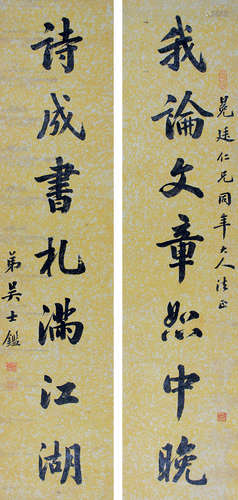 我論文章恕中晚
廷仁兄同年大人法正
詩成書札滿江湖
弟吳士鑑